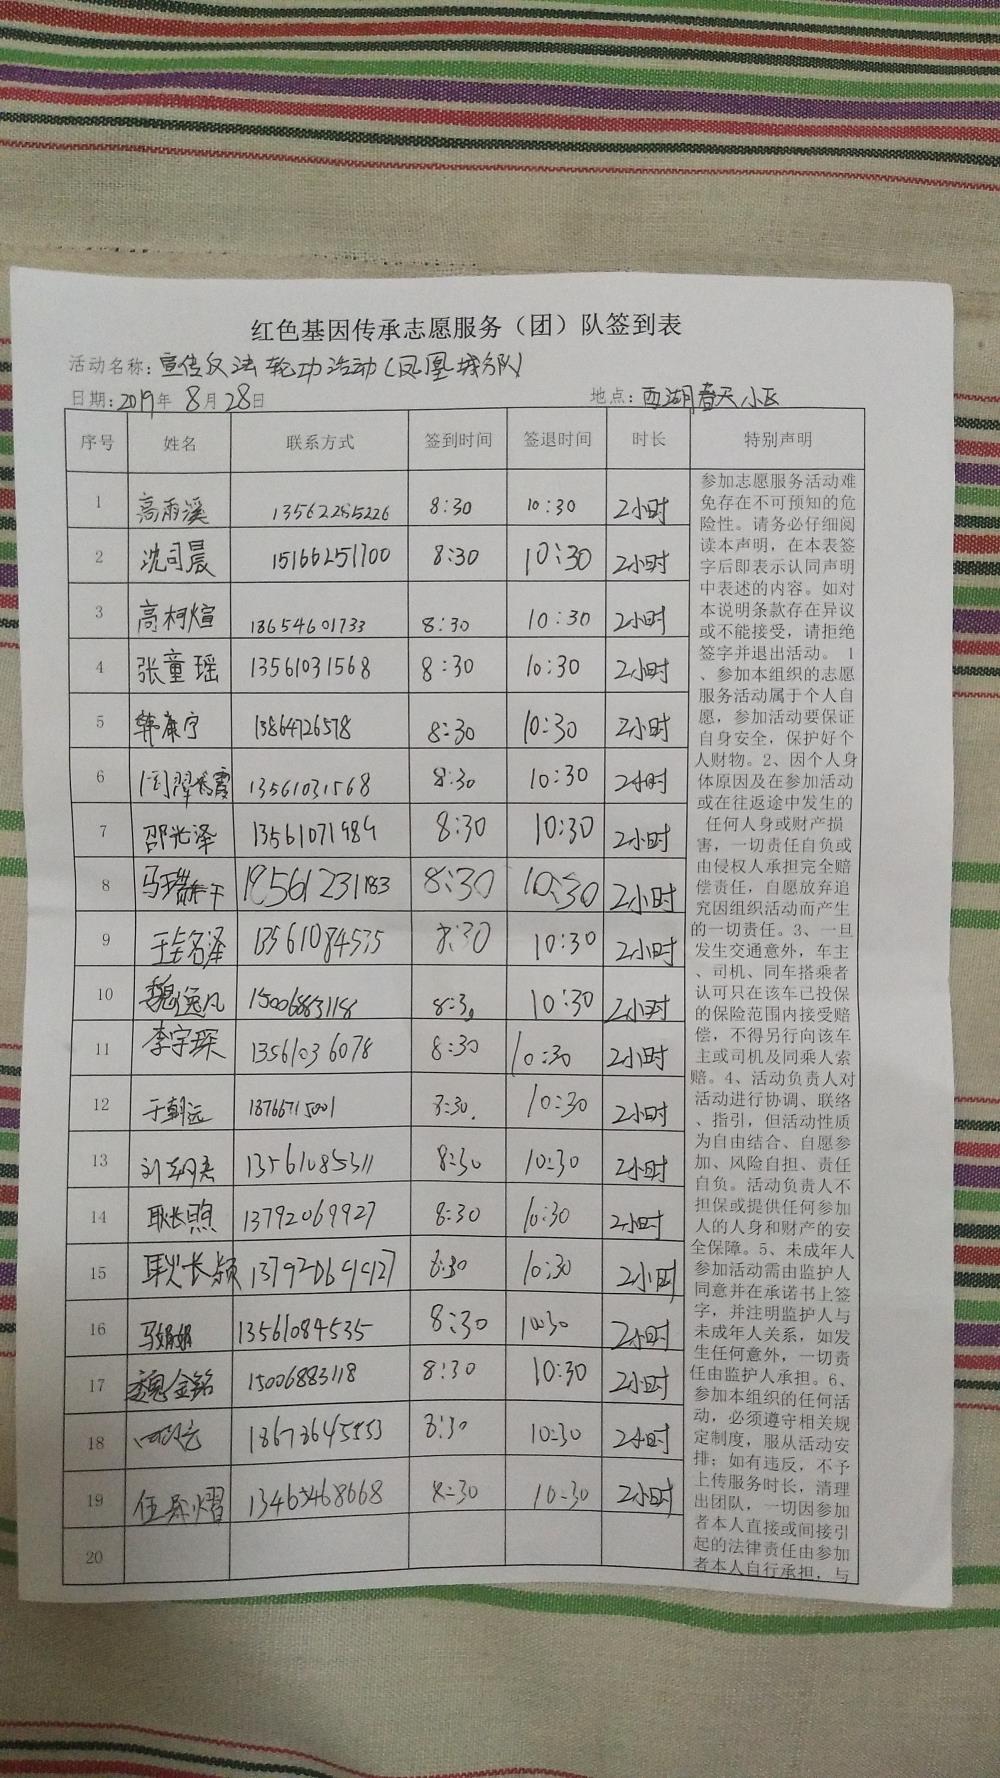 红色基因传承志愿服务（团）队签到表
活动名称：宣传反法轮功活动（凤凰城分队）
日期：2019年 8月28日 地点：西湖春天小区
序号 姓名 联系方式 签到时间 签退时间 时长 特别声明
1 高雨溪 13562285226 8:30 10:30 2小时
2 沈司晨 15166251700 8:30 10:30 2小时
3 高柯煊 18654601733 8:30 10:30 2小时
4 张童瑶 13561031568 8:30 10:30 2小时
5 韩康宁 13864726578 8:30 10:30 2小时
6 13561031568 8:30 10:30 2小时
7 邵光泽 13561071984 8:30 10:30 2小时
8 18561231183 8:30 10:30 2小时
9 13561084535 8:30 10:30 2小时
10 魏逸凡 15006883118 8:30 10:30 2小时
11 李宇琛 13561036078 8:30 10:30 2小时
12 于朝远 18766715001 8:30. 10:30 2小时
13 13561085311 8:30 10:30 2小时
14 耿长煦 13792069927 8:30 10:30 2小时
15 耿长颍 13792069927 8:30 10:30 2小时
16 马娟娟 13561084535 8:30 10:30 2小时
17 魏金铭 15006883118 8:30 10:30 2小时
18 8:30 10:30 2小时
19 13465468668 8:30 10:30 2小时
20
参加志愿服务活动难
免存在不可预知的危
险性。请务必仔细阅
读本声明，在本表签
字后即表示认同声明
中表述的内容。如对
本说明条款存在异议
或不能接受，请拒绝
签字并退出活动。 1
、参加本组织的志愿
服务活动属于个人自
愿，参加活动要保证
自身安全，保护好个
人财物。2、因个人身
体原因及在参加活动
或在往返途中发生的
任何人身或财产损
害，一切责任自负或
由侵权人承担完全赔
偿责任，自愿放弃追
究因组织活动而产生
的一切责任。3、一旦
发生交通意外，车主
、司机、同车搭乘者
认可只在该车已投保
的保险范围内接受赔
偿，不得另行向该车
主或司机及同乘人索
赔。4、活动负责人对
活动进行协调、联络
、指引，但活动性质
为自由结合、自愿参
加、风险自担、责任
自负。活动负责人不
担保或提供任何参加
人的人身和财产的安
全保障。5、未成年人
参加活动需由监护人
同意并在承诺书上签
字，并注明监护人与
未成年人关系，如发
生任何意外，一切责
任由监护人承担。6、
参加本组织的任何活
动，必须遵守相关规
定制度，服从活动安
排；如有违反，不予
上传服务时长，清理
出团队，一切因参加
者本人直接或间接引
起的法律责任由参加
者本人自行承担，与